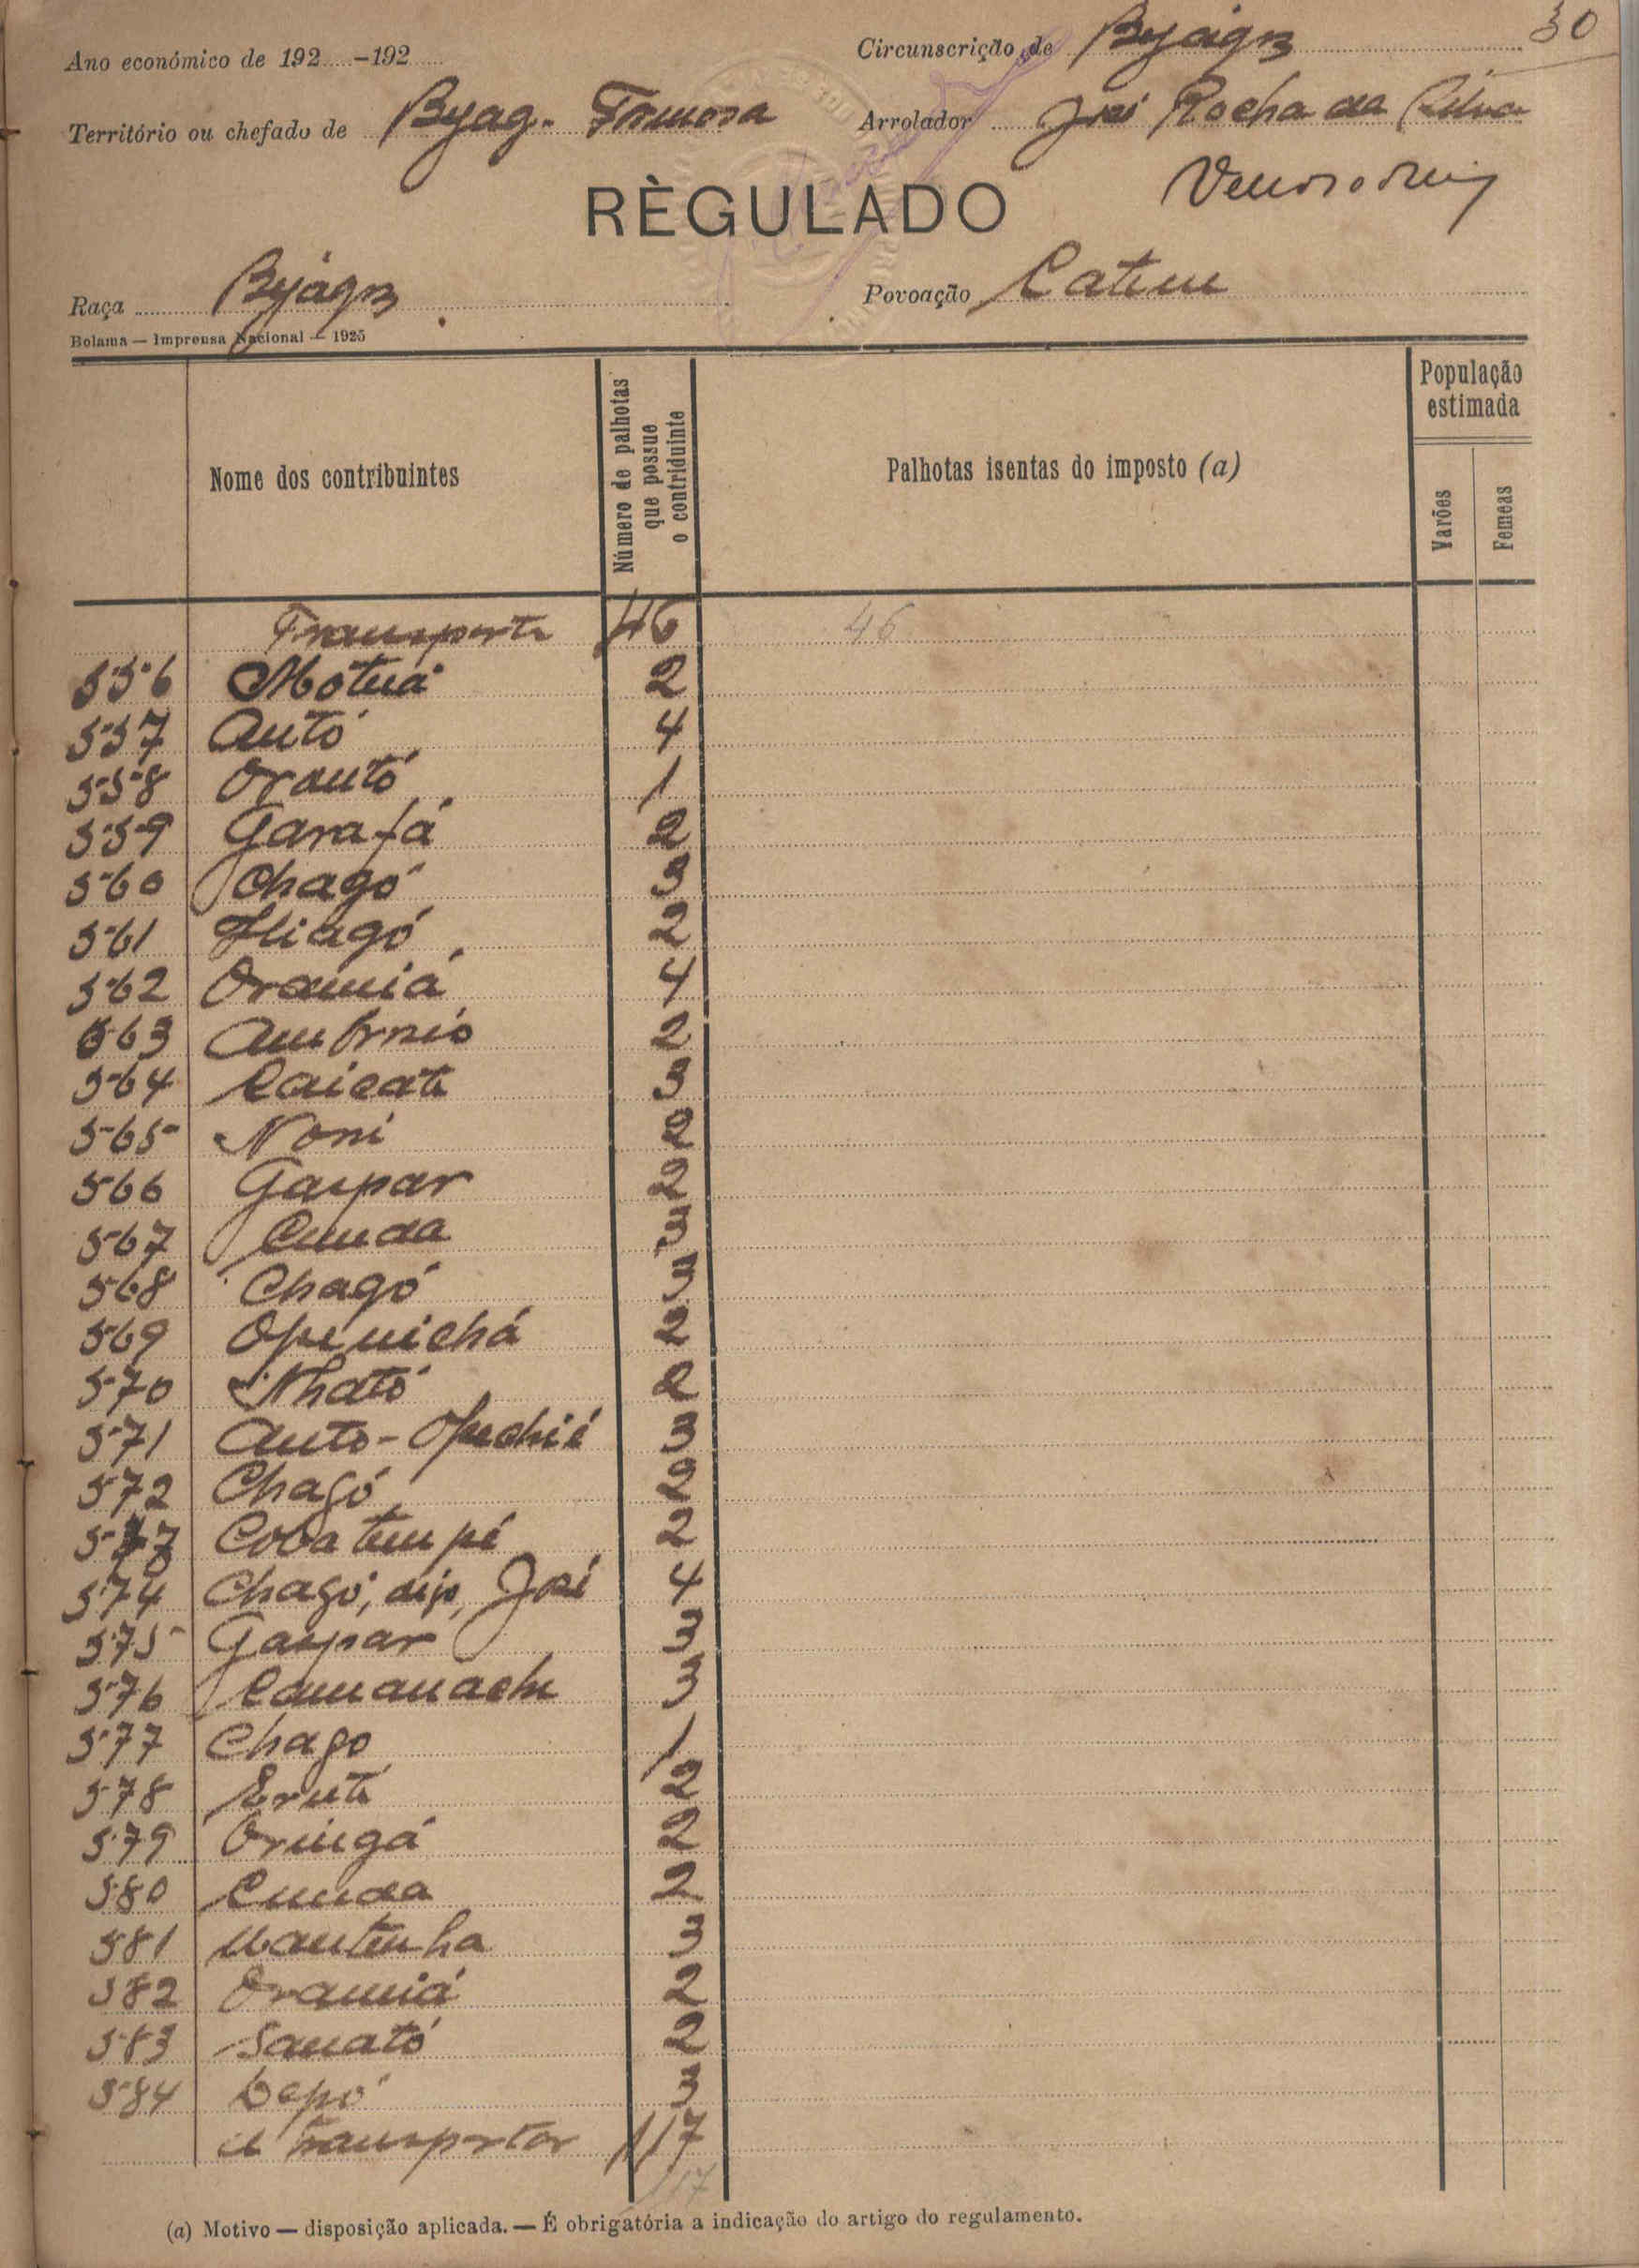 30
Ano económico de 192....-192.... Circunscrição de Byágoz
Território ou chefado de Byag. Formosa Arrolador José Rocha da Silva
RÈGULADO
Raça Byágoz Povoação Catem
Bolama — Imprensa Nacional — 1925
Nome dos contribuintes
Número de palhotas que possue o contriduinte
Palhotas isentas do imposto (a)
População estimada
Varões
Femeas
Transporte 46 46
556 Motuá 2
557 Autó 4
558 Orautó 1
559 Garafá 2
560 Chagó 3
561 Hiagó 2
562 Oramiá 4
563 Antonio 2
564 Caicate 3
565 Noni 2
566 Gaspar 2
567 Cunda 3
568 Chagó 3
569 Openichá 2
570 Nható 2
571 Auto-Opuchié 3
572 Chagó 2
573 Cobatempé 2
574 Chagó, digo, José 4
575 Gaspar 3
576 Camanache 3
577 Chago 1
578 Erute 2
579 Oringá 2
580 Cunda 2
581 Mantenha 3
582 Oramiá 2
583 Sanató 2
584 Depó 3
A transportar 117
117
(a) Motivo — disposição aplicada. — É obrigatória a indicação do artigo do regulamento.